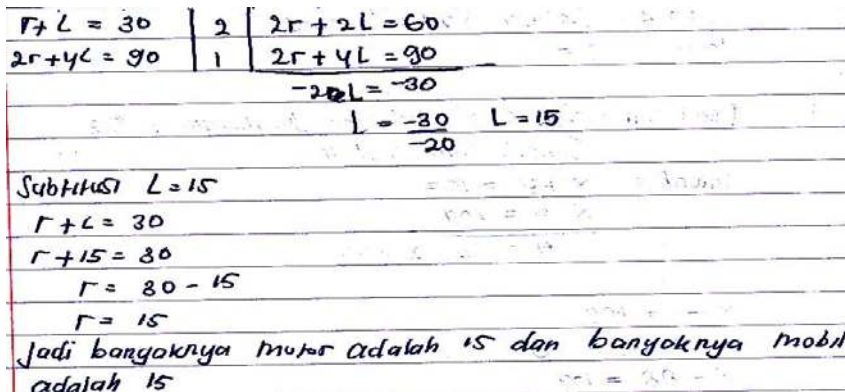 r+L = 30 | 2 | 2r + 2L = 60
2r+4L = 90 | 1 | 2r + 4L = 90
-2L = -30
L = -30/-20 L = 15
Subtitusi L = 15
r + L = 30
r + 15 = 30
r = 30 - 15
r = 15
Jadi banyaknya motor adalah 15 dan banyaknya mobil
adalah 15